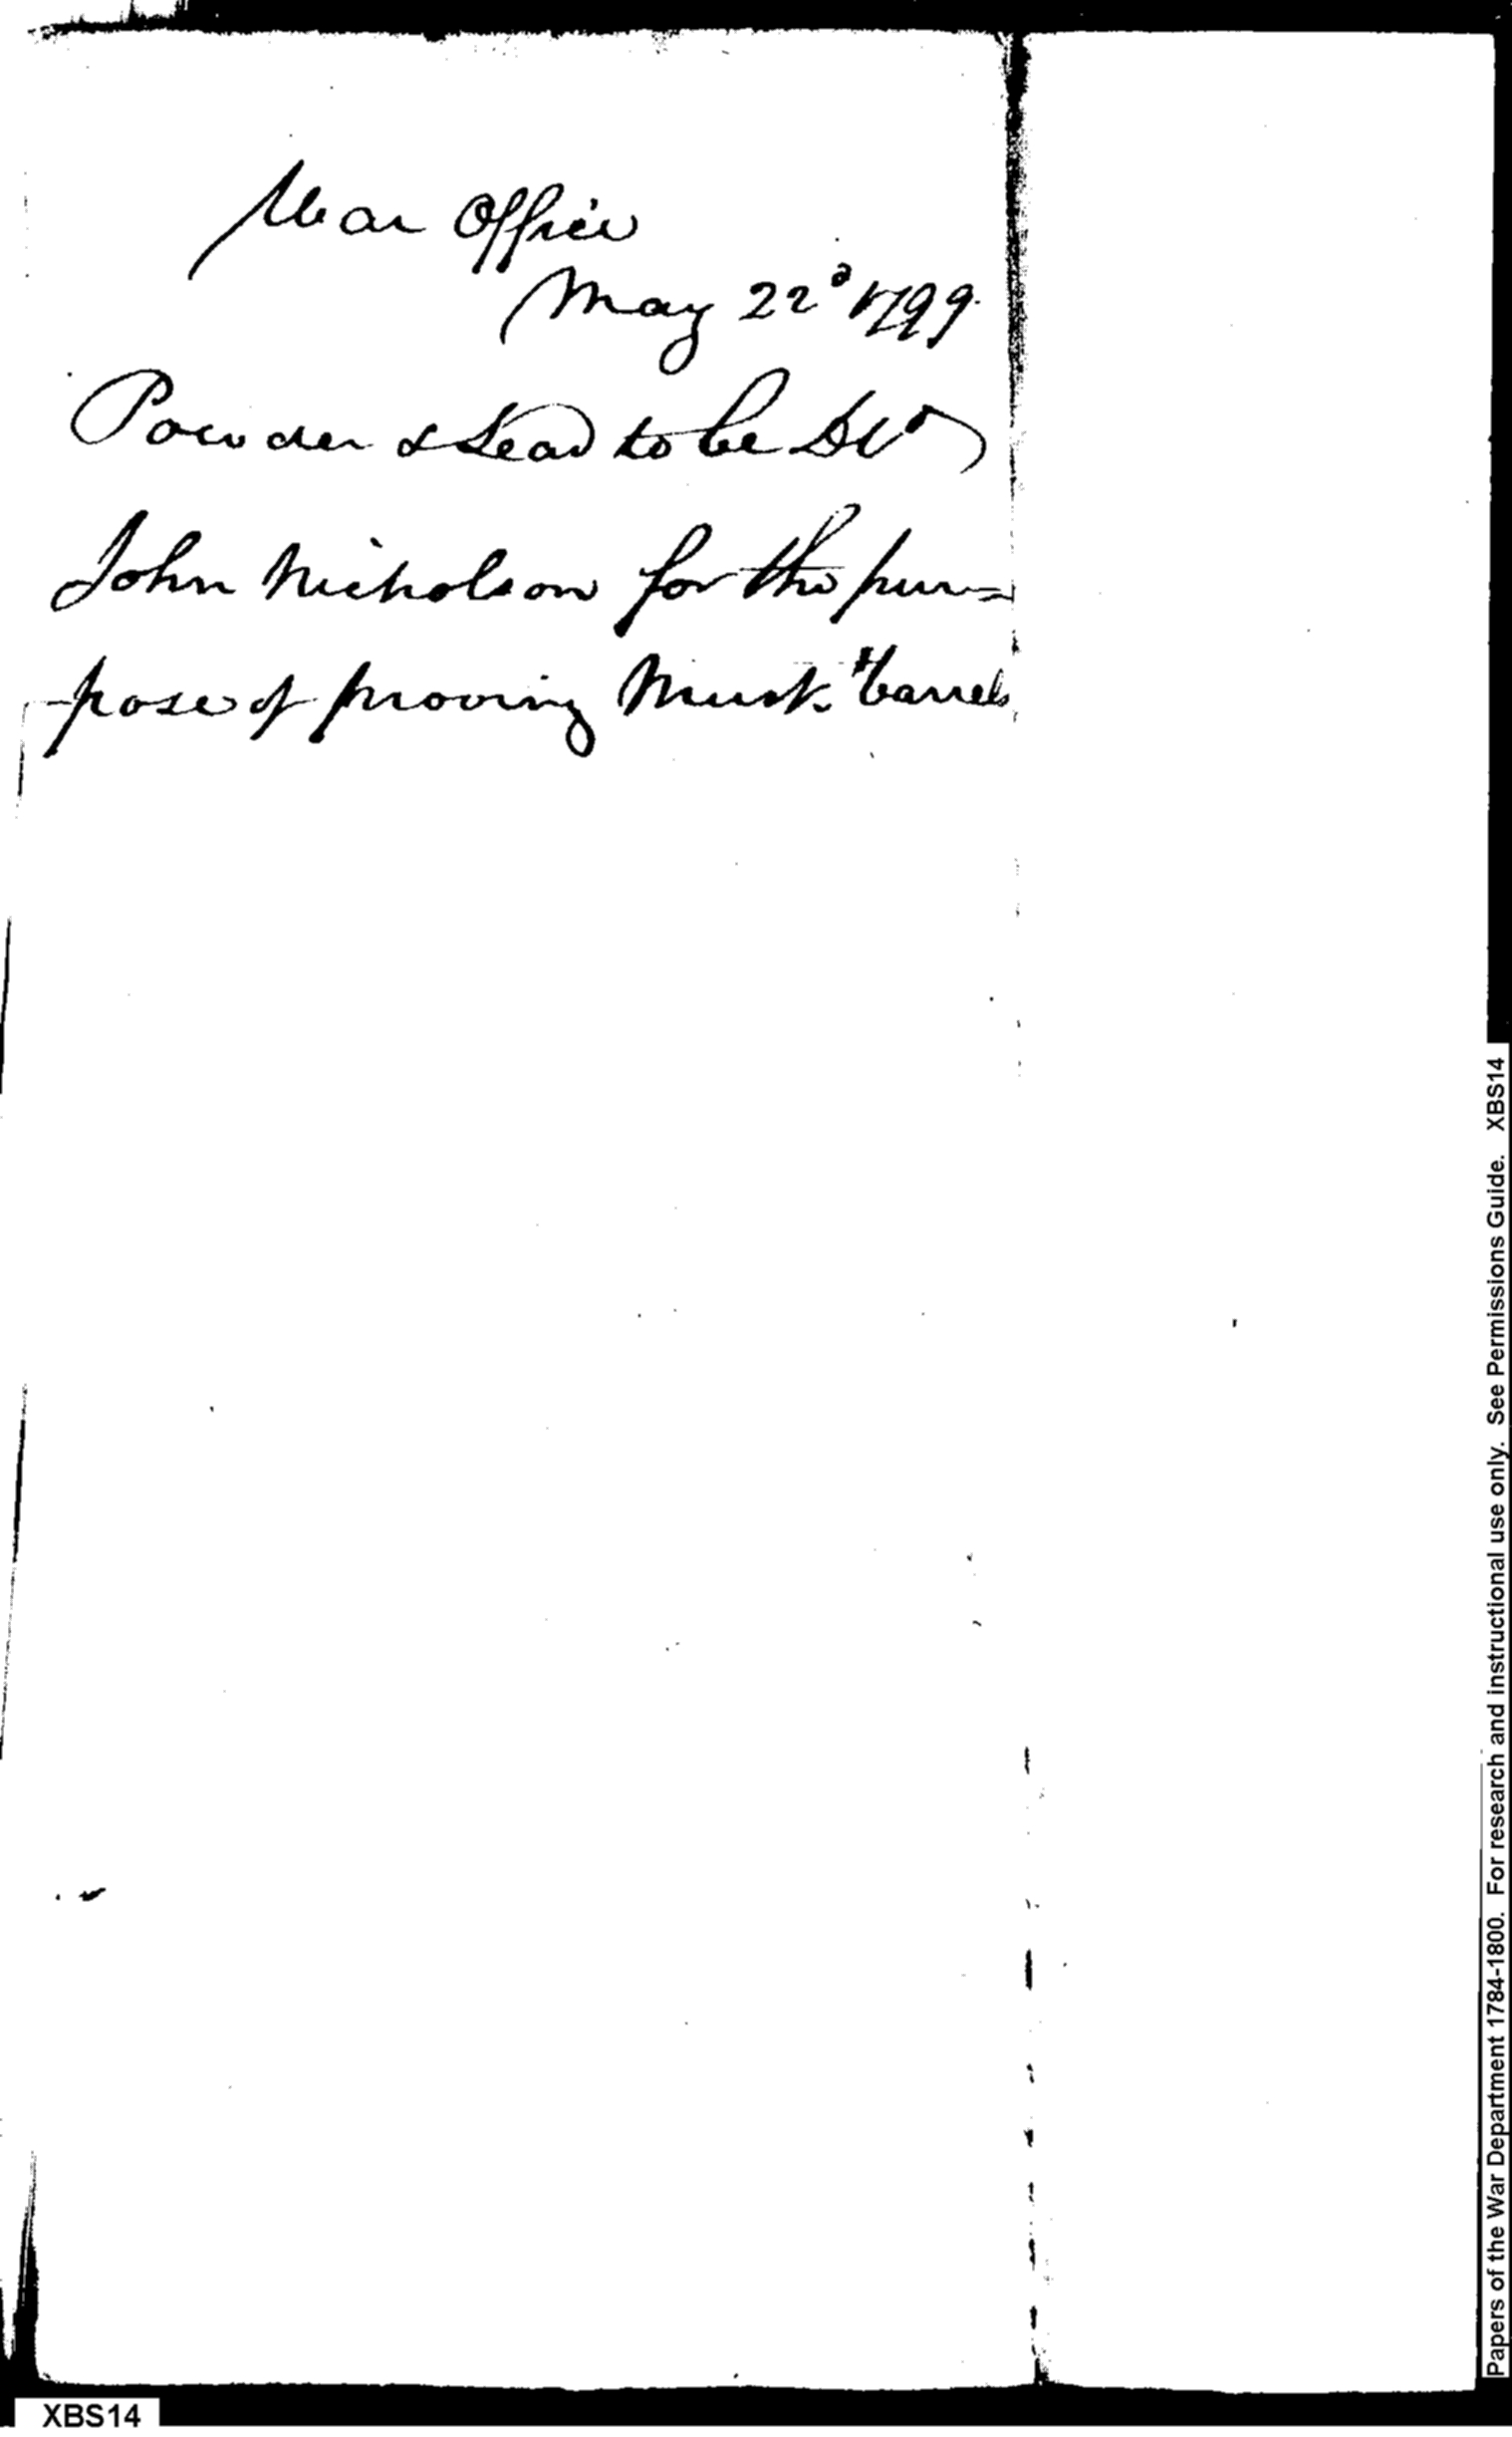 War Office
May 22d 1799.
Powder & Lead to be Dd
John Nicholson for the pur=
-pose of prooving Musk.t barrels
XBS14
Papers of the War Department 1784-1800. For research and instructional use only. See Permissions Guide. XBS14